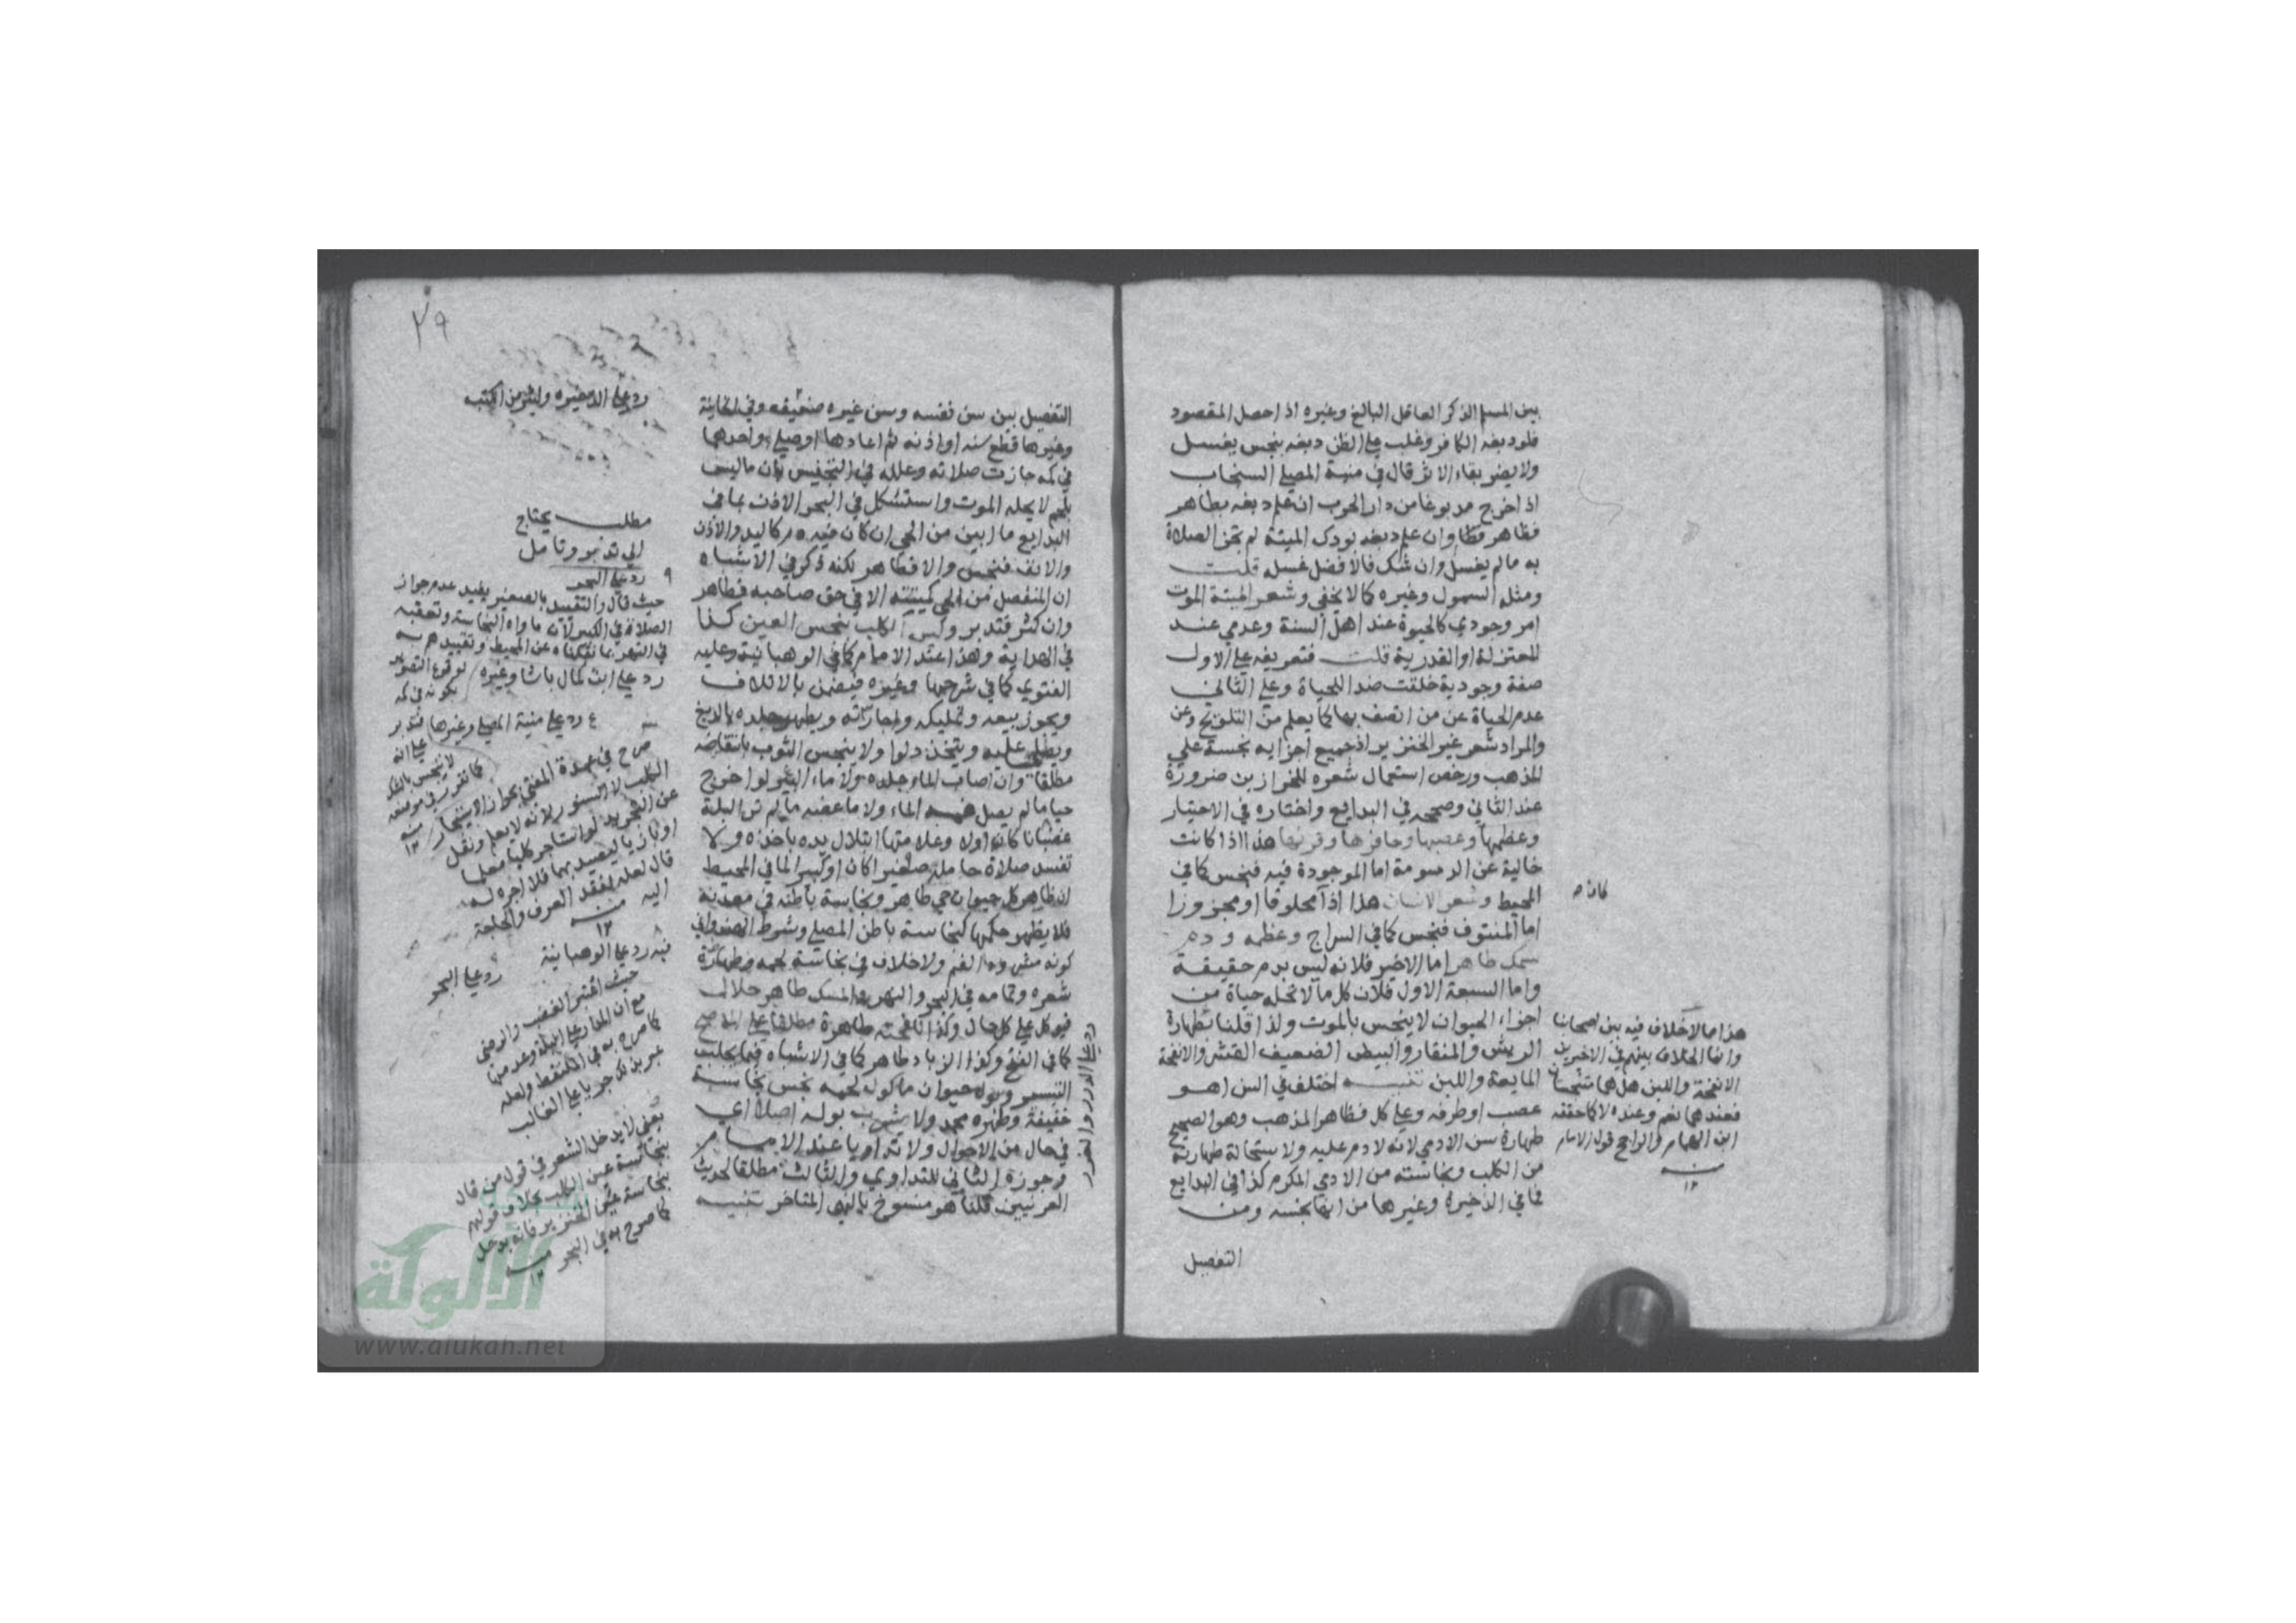 بين المسلم الذكر العاقل البالغ وغيره اذا حصل المقصود
فلو دبغه الكافر وغلب على الظن دبغه بنجس يغسل
ولا يضر بقاء الاثر قال في منية المصلي السنجاب
اذا خرج مدبوغا من دار الحرب ان علم دبغه بطاهر
فطاهر قطا وان علم دبغه بودك الميتة لم تجز الصلاة
به ما لم يغسل وان شك فالافضل غسله قلت
ومثله السمول وغيره كما لا يخفى وشعر الميتة الموت
امر وجودي كالحيوة عند اهل السنة وعدمي عند
المعتزلة او القدرية قلت فتعريفه على الاول
صفة وجودية خلقت ضد اللحياة وعلى الثاني
عدم الحياة عن من اتصف بها كما يعلم من التلويح وعن
والمراد شعر غير الخنزير اذ جميع اجزايه نجسة على
المذهب ورخص استعمال شعره للخرازين ضرورة
عند الثاني وصححه في البدايع واختاره في الاختيار
وعظمها وعصبها وحافرها وقرنها هذا اذا كانت
خالية عن الدسومة اما الموجودة فيه فنجس كما في
المحيط وشعر الانسان هذا اذا محلوقا او مجزوزا
كان صح
اما المنتوف فنجس كما في السراج وعظمه ودم
سمك طاهر اما الاخير فلانه ليس بدم حقيقة
واما السبعة الاول فلان كل ما لا تحله حياة من
اجزاء الحيوان لا ينجس بالموت ولذا قلنا بطهارة
الريش والمنقار والبيض الضعيف القشر والانفحة
المايعة واللبن تنبيه اختلف في السن اهو
عصب او طرفه وعلى كل فظاهر المذهب وهو الصحيح
طهارة سن الادمي لانه لا دم عليه ولاستحالة طهارته
من الكلب ونجاسته من الادمي المكرم كذا في البدايع
فما في الذخيرة وغيرها من انها نجسه ومن
التفصيل
هذا مما لا خلاف فيه بين اصحابنا
وانما الخلاف بينهم في الاخيرين
الانفحة واللبن هل هما متنجسان
فعندهما نعم وعنده لا كما حققه
ابن الهمام والراجح قول الامام
منه
١٢
٢٩
التفصيل بين سن نفسه وسن غيره ضعيفه وفي الخانية
وغيرها قطع سنه او اذنه ثم اعادها او صلى واحدهما
في كمه جازت صلاته وعلله في التجنيس بان ما ليس
بلحم لا يحله الموت واستشكل في البحر الاذن بما في
البدايع ما ابين من الحي ان كان فيه دم كاليد والاذن
والانف فنجس والا فطاهر لكنه ذكر في الاشباه
ان المنفصل من الحي كميتته الا في حق صاحبه فطاهر
وان كثر فتدبر وليس الكلب بنجس العين كذا
في الهداية وهذا عند الامام كما في الوهبانية وعليه
الفتوى كما في شرحها وغيره فيضمن بالاتلاف
ويجوز بيعه وتمليكه واجارته ويطهر جلده بالدبغ
ويصلى عليه ويتخذ دلوا ولا ينجس الثوب بانتفاضه
مطلقا وان اصاب الماء جلده ولا ماء البئر لو اخرج
حيا ما لم يصل فمه الماء ولا ما عضه ما لم تر البلة
غضبانا كان اولا وعلامتها ابتلال يده باخذه ولا
تفسد صلاة حامله صغيرا كان او كبيرا لما في المحيط
ان ظاهر كل حيوان حي طاهر ونجاسة باطنه في معدته
فلا يظهر حكمها كنجاسة باطن المصلي وشرط الحلواني
كونه مشدود الفم ولا خلاف في نجاسة لحمه وطهارة
شعره وتمامه في البحر والنهر والمسك طاهر حلال
فيوكل على كل حال وكذا نافجته طاهرة مطلقا على الاصح
كما في الفتح وكذا الزباد طاهر كما في الاشباه فيما يجلب
التيسير وبول حيوان ماكول لحمه نجس نجاسة
خفيفة وطهره محمد ولا يشرب بوله اصلا اي
في حال من الاحوال ولا تداويا عند الامام
وجوزه الثاني للتداوي والثالث مطلقا لحديث
العرنيين قلنا هو منسوخ بالنهي المتاخر تنبيه
رد على الذخيره وليثر من الكتب
مطلب يحتاج
الى تدبر وتامل
رد على البحر
حيث قال والتقييد بالصغير يفيد عدم جواز
الصلاة في الكبير لان ماواه النجاسة وتعقبه
في النهر بما نقلناه عن المحيط وتقييدهم به
رد على ابن كمال باشا وغيره
لوقوع التصوير
بكونه في كمه
رد على منية المصلي وغيرها فتدبر
صرح في عمدة المفتي بجواز استيجار
الكلب لا السنور لانه لا يعلم ونقل
عن التجريد لو استاجر كلبا معلما
او بازيا ليصيد بهما فلا اجر له
قال لعله لفقد العرف والحاجة
اليه منه
١٢
فيه رد على الوهبانية
رد على البحر
حيث اعتبر الغضب والرضى
مع ان المدار على البلة وعدمها
كما صرح به في الملتقط ولعله
يعني لا يدخل الشعر في قول من قال
بنجاسة عين الكلب بخلاف قولهم
بنجاسة عين الخنزير فانه يدخل
كما صرح به في البحر منه
١٢
رد على الدرر والغرر
شبكة
الألوكة
www.alukah.net